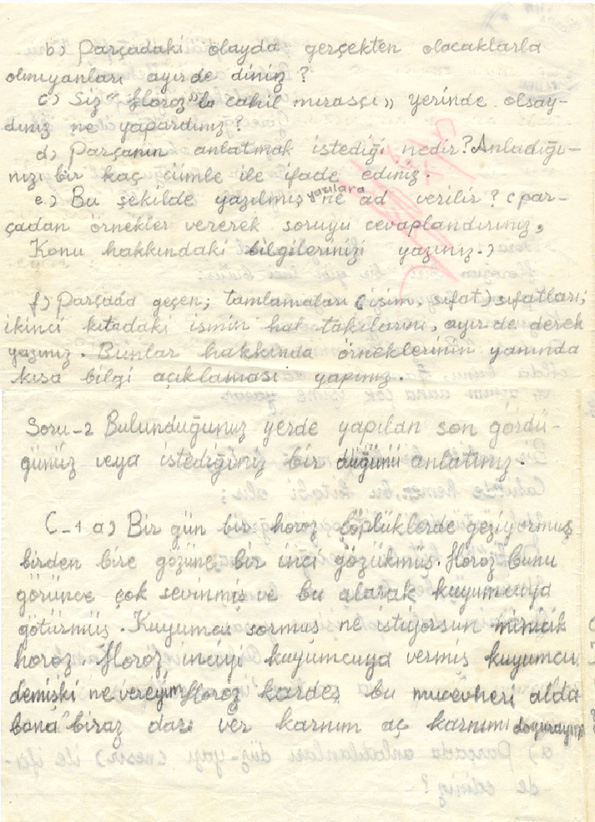 b) Parçadaki olayda gerçekten olacaklarla
olmıyanları ayırde diniz?
c) Siz "Horoz"la cahil mirasçı» yerinde olsay-
dınız ne yapardınız?
d) Parçanın anlatmak istediği nedir? Anladığı-
nızı bir kaç cümle ile ifade ediniz.
e.) Bu şekilde yazılmış yazılara ne ad verilir? (par-
çadan örnekler vererek soruyu cevaplandırınız,
Konu hakkındaki bilgilerinizi yazınız.)
f) Parçada geçen; tamlamaları (isim, sıfat) sıfatları;
ikinci kıtadaki ismin hal takılarını, ayır de derek
yazınız. Bunlar hakkında örneklerinin yanında
kısa bilgi açıklaması yapınız.
Soru-2 Bulunduğunuz yerde yapılan son gördü-
günüz veya istediğiniz bir düğünü anlatınız.
C-1 a) Bir gün bir horoz çöplüklerde geziyormuş
birden bire gözüne bir inci gözükmüş. Horoz bunu
görünce çok sevinmiş ve bu alarak kuyumcuya
götürmüş. Kuyumcu sormuş ne istiyorsun minicik
horoz. Horoz inciyi kuyumcuya vermiş kuyumcu
demişki ne vereyim Horoz kardeş bu mucevheri alda
bana biraz darı ver karnım aç karnımı doyurayım